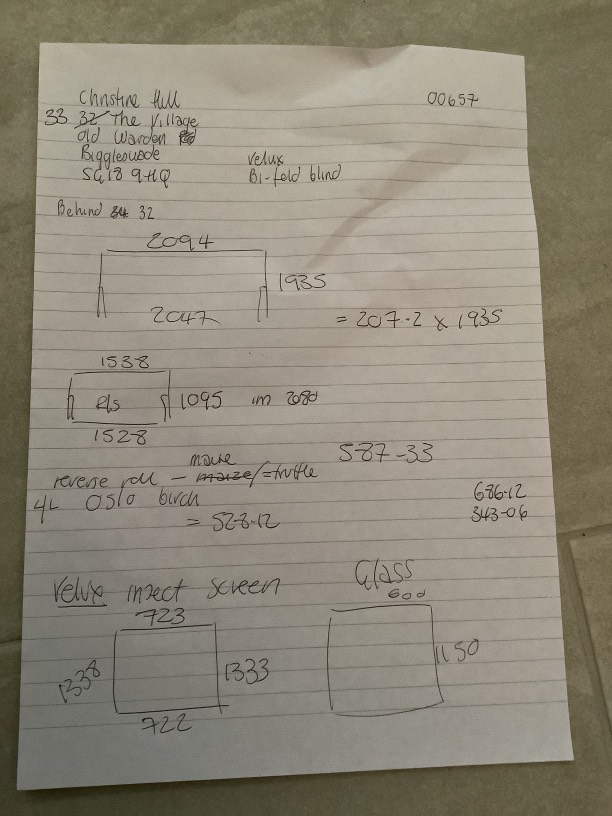 Christine Hill
00657
33 32 The Village
Old Warden
Biggleswade
Velux
SG18 9HQ
Bi-fold blind
Behind 32
2094
1935
2047
= 207.2 x 1935
1538
R/S 1095 im 2080
1528
587-33
mauve
reverse roll - maize/=truffle
4L Oslo birch
686-12
343-06
= 528-12
Velux insect screen
Glass
723
600
1338
1333
1150
722